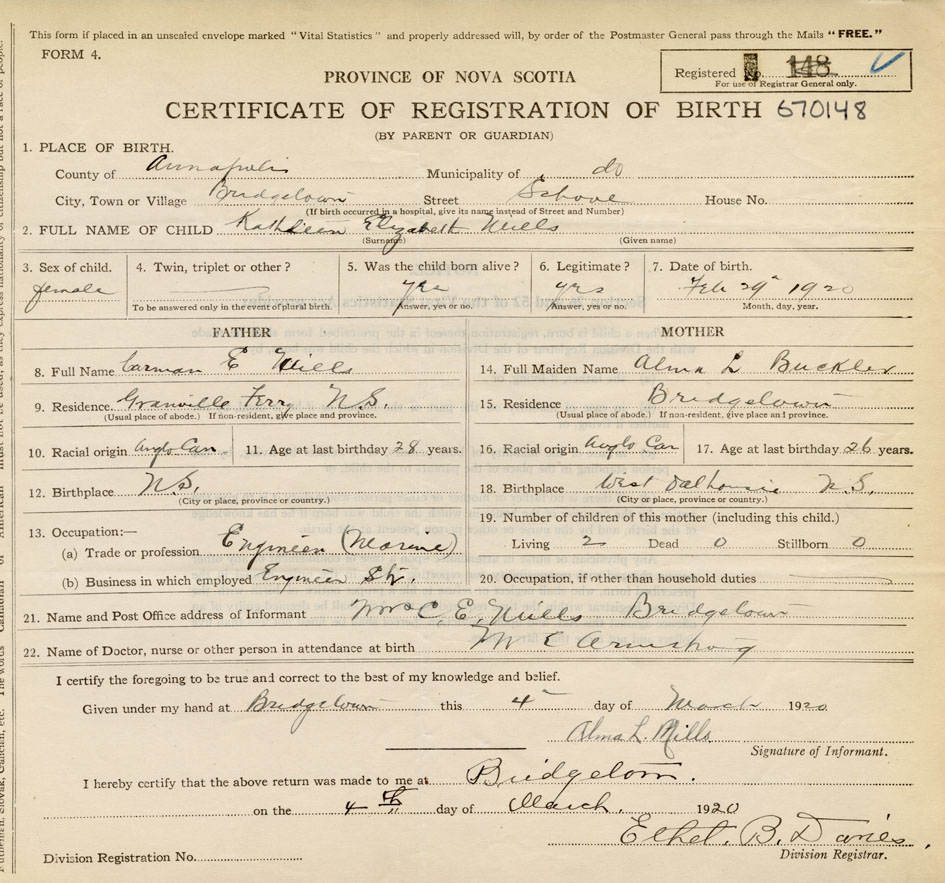 This form if placed in an unsealed envelope marked "Vital Statistics" and properly addressed will, by order of the Postmaster General pass through the Mails "FREE."
FORM 4.
Registered No. 148
For use of Registrar General only.
PROVINCE OF NOVA SCOTIA
CERTIFICATE OF REGISTRATION OF BIRTH 670148
(BY PARENT OR GUARDIAN)
1. PLACE OF BIRTH.
County of Annapolis Municipality of do
City, Town or Village Bridgetown Street House No.
(If birth occurred in a hospital, give its name instead of Street and Number)
2. FULL NAME OF CHILD Kathleen Elizabeth Mills
(Surname) (Given name)
3. Sex of child. 4. Twin, triplet or other? 5. Was the child born alive? 6. Legitimate? 7. Date of birth.
female yes yes Feb 29" 1920
To be answered only in the event of plural birth. Answer, yes or no. Answer, yes or no. Month, day, year.
FATHER MOTHER
8. Full Name Carman E Mills
9. Residence Granville Ferry N.S.
(Usual place of abode.) If non-resident, give place and province.
10. Racial origin Anglo Can 11. Age at last birthday 28 years.
12. Birthplace N.S.
(City or place, province or country.)
13. Occupation:—
(a) Trade or profession Engineer (Marine)
(b) Business in which employed Engineer Str.
14. Full Maiden Name Alma L Buckler
15. Residence Bridgetown
(Usual place of abode.) If non-resident, give place and province.
16. Racial origin Anglo Can 17. Age at last birthday 26 years.
18. Birthplace West Dalhousie N.S.
(City or place, province or country.)
19. Number of children of this mother (including this child.)
Living 2 Dead 0 Stillborn 0
20. Occupation, if other than household duties
21. Name and Post Office address of Informant Mrs C. E. Mills Bridgetown
22. Name of Doctor, nurse or other person in attendance at birth M E Armstrong
I certify the foregoing to be true and correct to the best of my knowledge and belief.
Given under my hand at Bridgetown this 4" day of March 1920
Alma L. Mills
Signature of Informant.
I hereby certify that the above return was made to me at Bridgetown.
on the 4th day of March. 1920
Ethel. B. Davies,
Division Registrar.
Division Registration No.